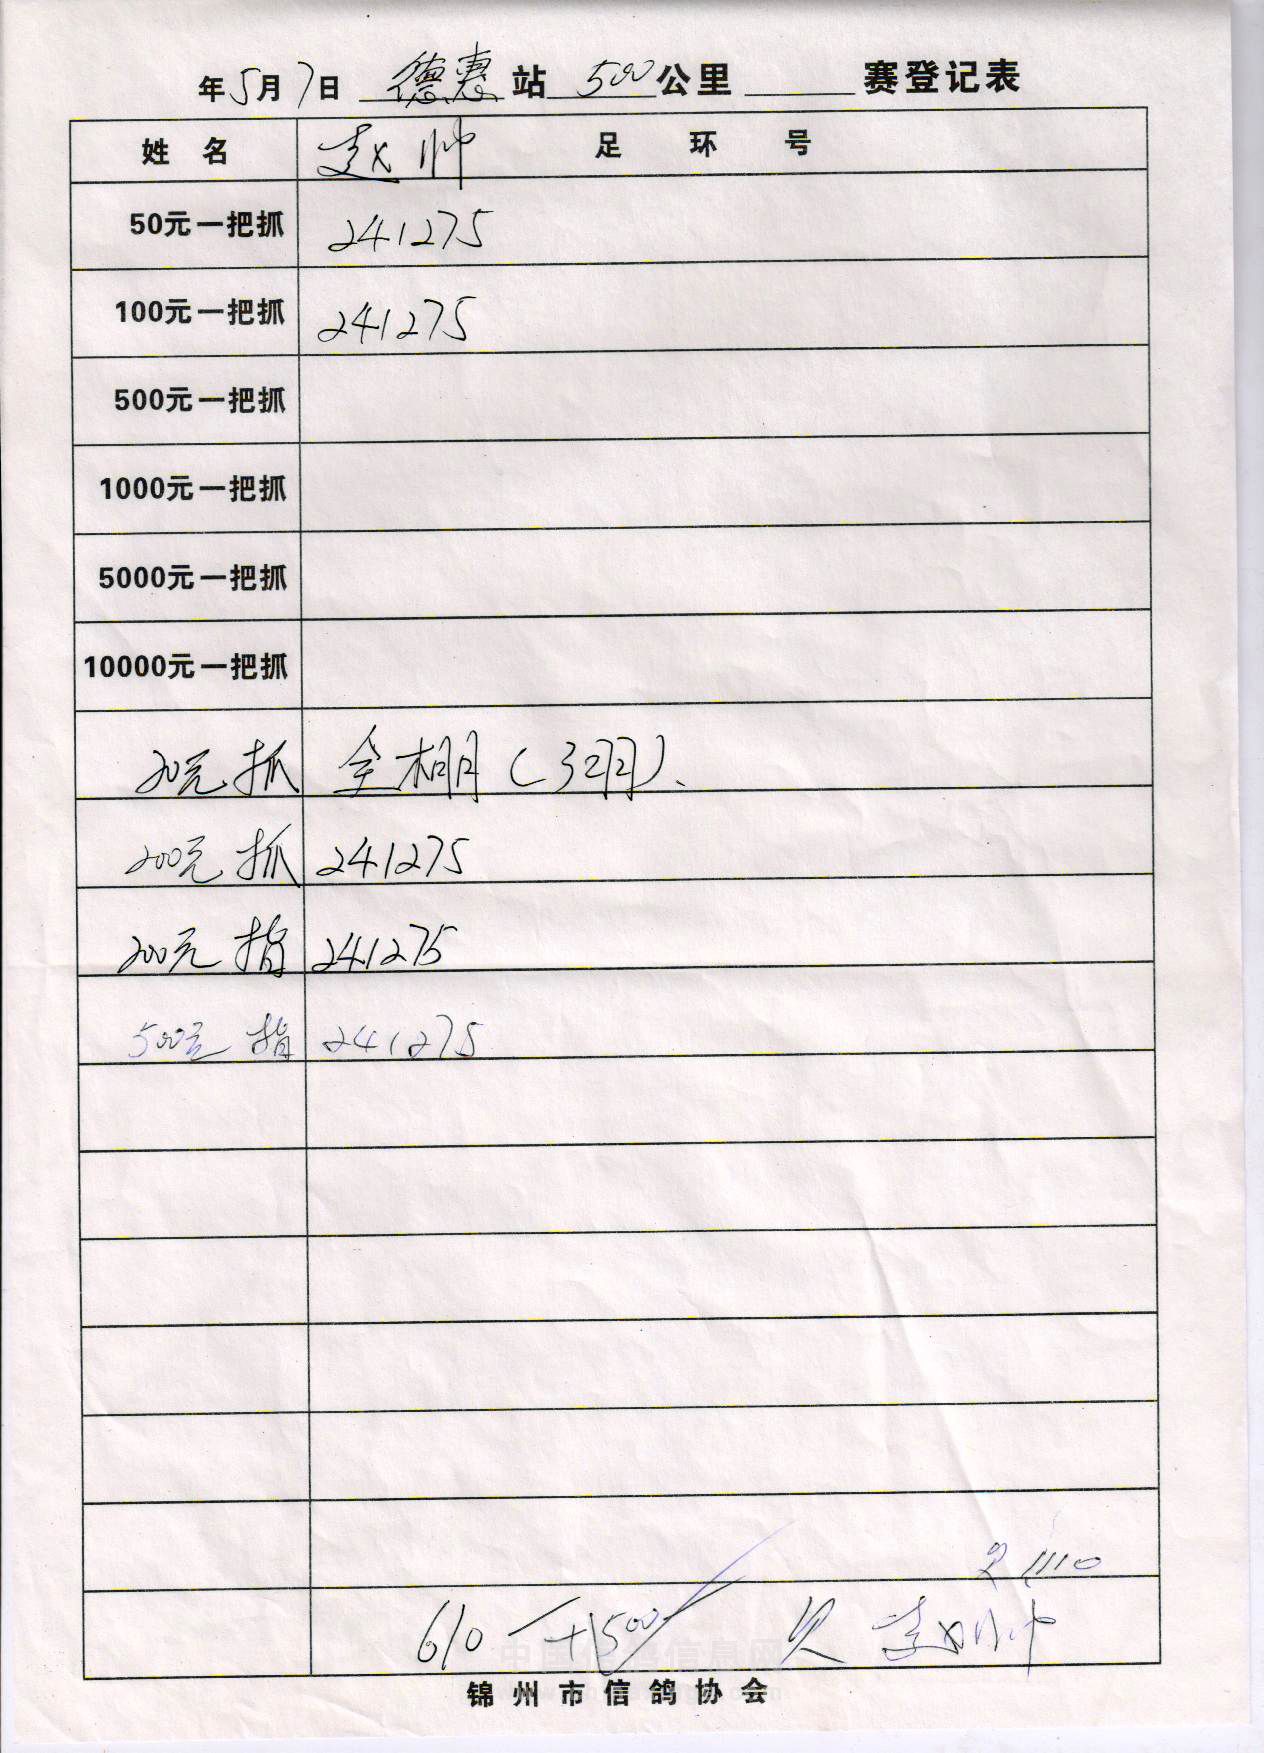 年5月7日 德惠 站 500公里 赛登记表
姓 名 赵帅 足 环 号
50元一把抓 241275
100元一把抓 241275
500元一把抓
1000元一把抓
5000元一把抓
10000元一把抓
20元抓 全棚(3羽)、
200元抓 241275
200元指 241275
500元指 241275
1110
610 +500 欠 赵帅
中国信鸽信息网
锦州市信鸽协会